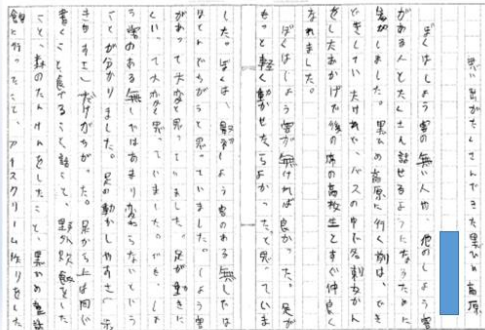 思い出がたくさんできた黒ひめ高原
ぼくはしょう害の無い人や、他のしょう害
がある人とたくさん話せるようになるために
参がしました。黒ひめ高原に行く前は、どき
どきしていたけれど、バスの中で名刺交かん
をしたおかげで後の席の高校生とすぐ仲良く
なれました。
ぼくはしょう害が無ければ良かった、足が
もっと軽く動かせたらよかったと思っていま
した。ぼくは、最初しょう害のある無しでは
ほとんどちがうと思っていました。しょう害
があって大変と思っていました。足が動きに
くい、って大変と思っていました。でも、しょ
う害のある無しではあまり変わらないという
ことが分かりました。足の動かしやすさ(
きやすさ)だけがちがった。足から上は同じ
書くこと、食べること、話すこと、野外炊飯をした
こと、森のたんけんをしたこと、黒ひめ童話
館に行ったこと、アイスクリーム作りをした